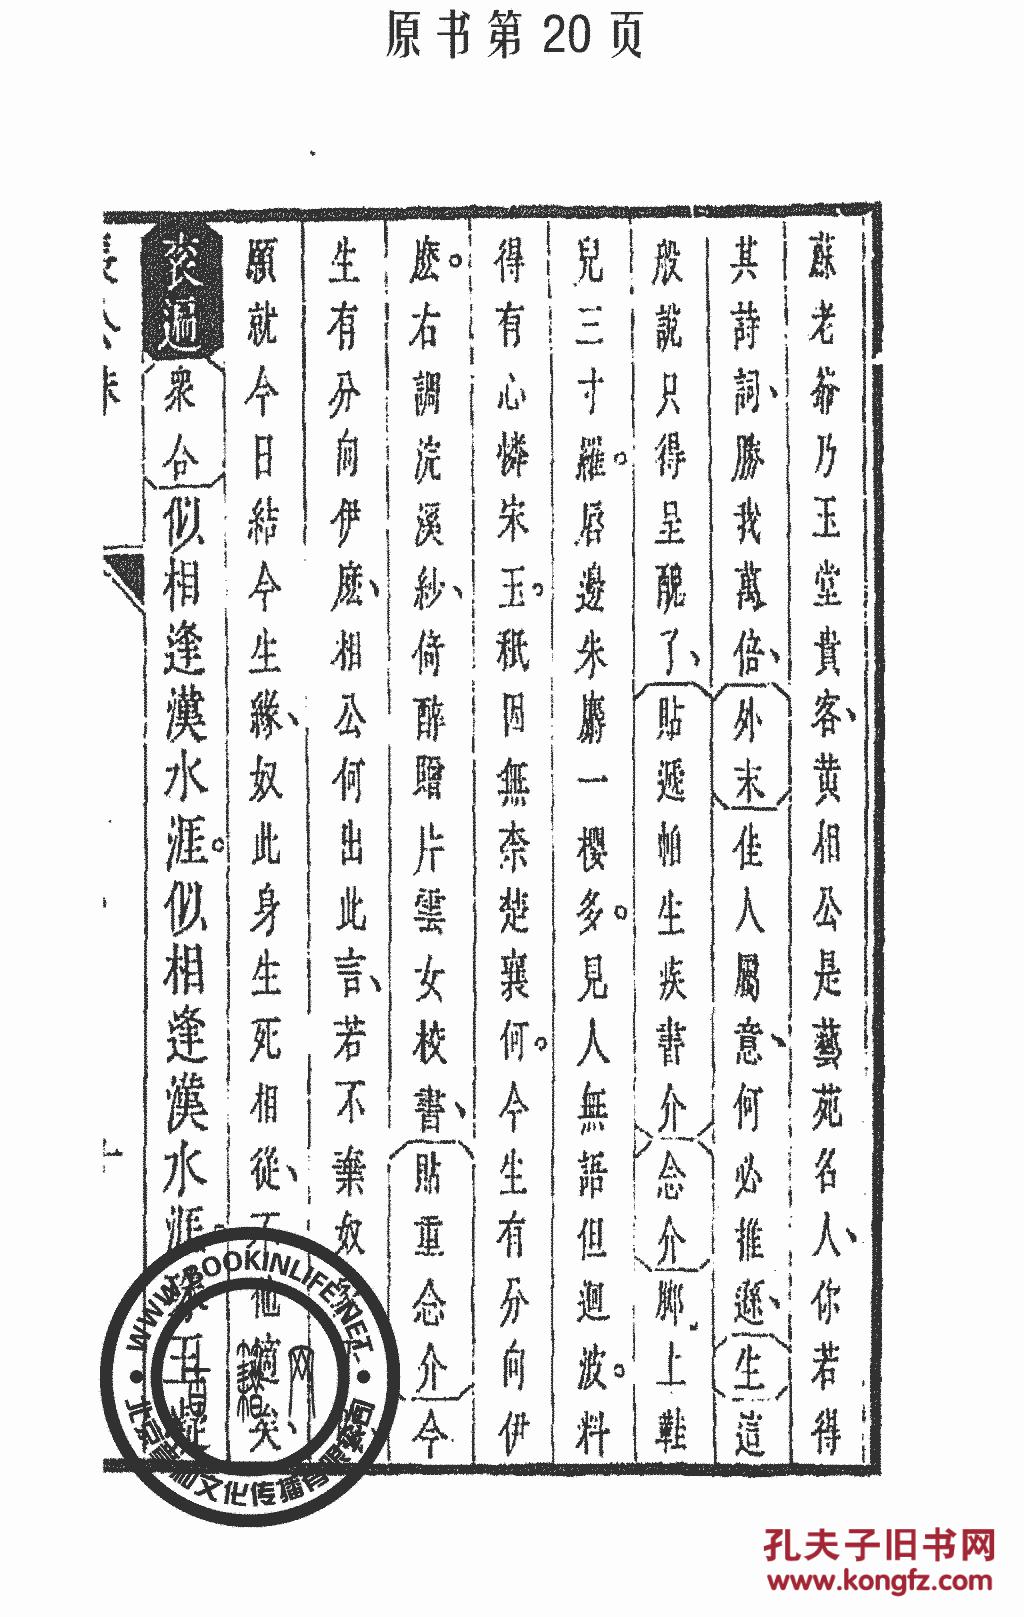 原书第20页
蘇老爺乃玉堂貴客、黄相公是藝苑名人、你若得
其詩詞、勝我萬倍、外末佳人屬意、何必推遜、生這
般說只得呈醜了、貼遞帕生疾書介念介鄉上鞋
兒三寸羅。唇邊朱麝一櫻多。見人無語但迴波。料
得有心憐宋玉。秪因無奈楚襄何。今生有分向伊
麽。右調浣溪紗、倚醉贈片雲女校書、貼重念介今
生有分向伊麽、相公何出此言、若不棄奴
願就今日結今生緣、奴此身生死相從、不他適矣、
衮遍衆合似相逢漢水涯。似相逢漢水涯。
WWW.BOOKINLIFE.NET
文化传播有限公司
孔夫子旧书网
www.kongfz.com